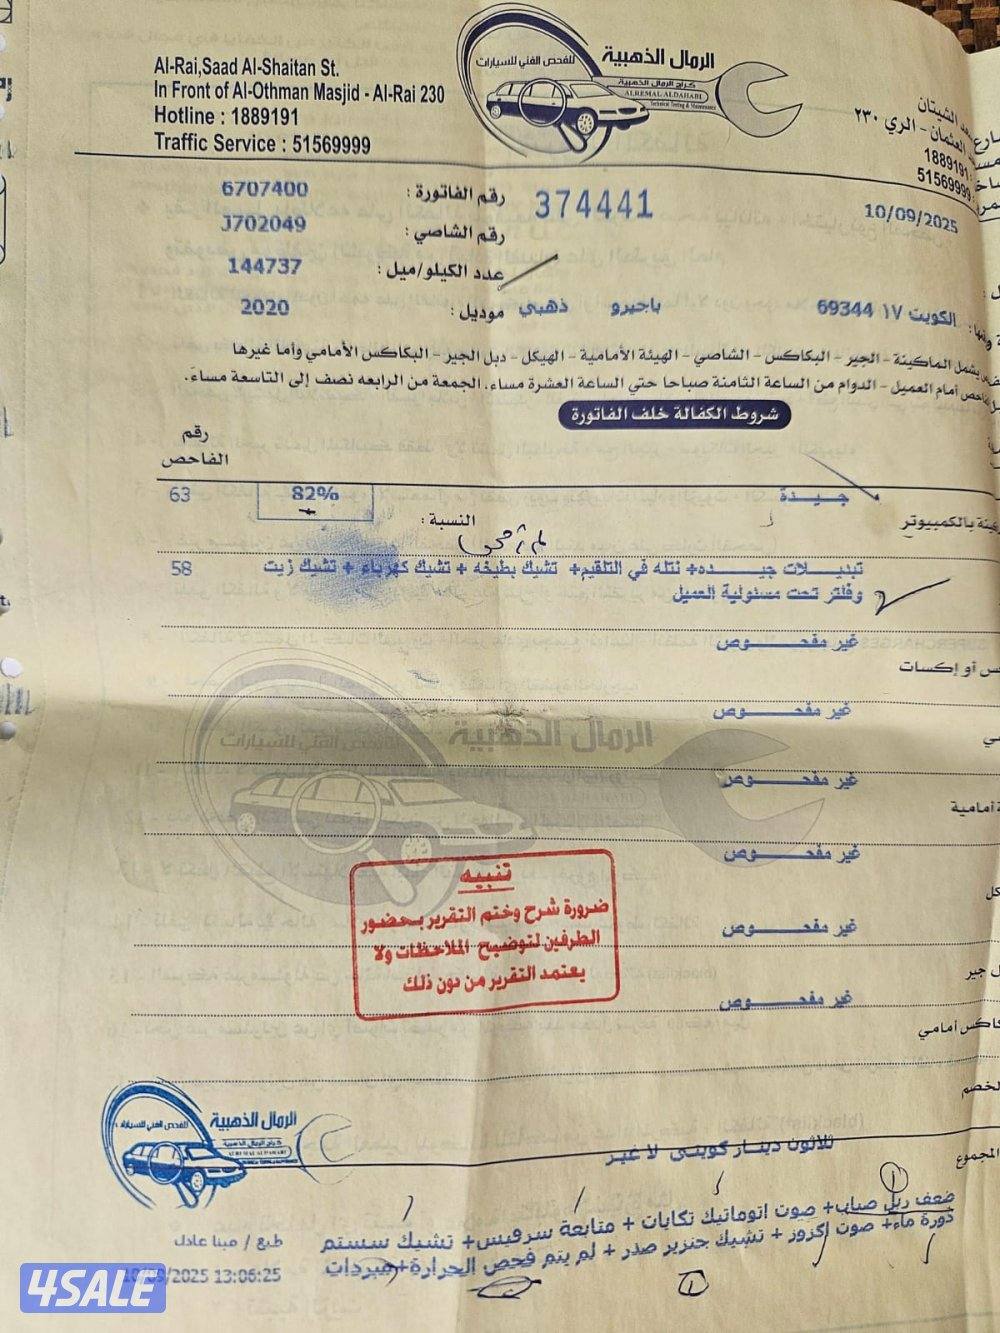 الرمال الذهبية
للفحص الفني للسيارات
كراج الرمال الذهبية
ALREMAL ALDAHABI
Technical Testing & Maintenance
Al-Rai,Saad Al-Shaitan St.
In Front of Al-Othman Masjid - Al-Rai 230
Hotline : 1889191
Traffic Service : 51569999
العثمان - الري ٢٣٠
1889191
51569999
رقم الفاتورة : 6707400
374441
10/09/2025
رقم الشاصي : J702049
عدد الكيلو/ميل : 144737
الكويت ١٧ 69344 باجيرو ذهبي موديل : 2020
يشمل الماكينة - الجير - البكاكس - الشاصي - الهيئة الأمامية - الهيكل - دبل الجير - البكاكس الأمامي وأما غيرها
أمام العميل - الدوام من الساعة الثامنة صباحا حتي الساعة العشرة مساء، الجمعة من الرابعه نصف إلى التاسعة مساءً.
شروط الكفالة خلف الفاتورة
رقم الفاحص
جيـــدة 82% 63
بالكمبيوتر النسبة :
تبديـــلات جيـــده+ نتله في التلقيم+ تشيك بطيخه + تشيك كهرباء + تشيك زيت 58
وفلتر تحت مسئولية العميل
غير مفحـــوص
أو إكسات
غير مفحـــوص
غير مفحـــوص
أمامية
غير مفحـــوص
غير مفحـــوص
جير
غير مفحـــوص
أمامي
الرمال الذهبية
للفحص الفني للسيارات
تنبيه
ضرورة شرح وختم التقرير بحضور
الطرفين لتوضيح الملاحظات ولا
يعتمد التقرير من دون ذلك
الخصم
الرمال الذهبية
للفحص الفني للسيارات
كراج الرمال الذهبية
ALREMAL ALDAHABI
ثلاثون دينـار كويتـي لا غير
المجموع
ضعف ربل صباب+ صوت اتوماتيك تكايات + متابعة سرفيس+ تشيك سستم
دورة ماء+ صوت اكزوز + تشيك جنزير صدر + لم يتم فحص الحرارة+مبردات
طبع / مينا عادل
10/09/2025 13:06:25
4SALE